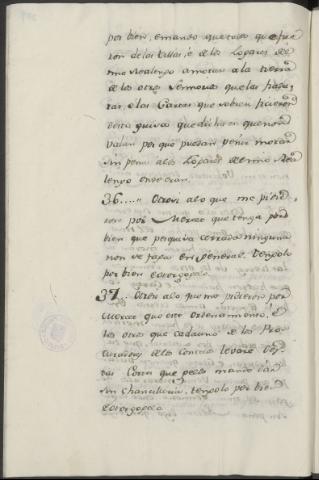 por bien, e mando que todos que fue
ron de las Villas, e de los Logares de
mio Realengo a morar a la tierra
de los otros Sennores que las faga
tas, e las Cartas que sobre
esta guisa que dichas en que non
valan por que puedan venir morar
sin pena a los Logares de mio Rea
lengo onde eran.
36..... Otrosi a lo que me pidie
ron por Merced que tenga por
bien que pesquisa cerrada ninguna
non se faga en general. Tengolo
por bien e otorgogelo.
37. Otrosi a lo que me pidieron por
Merced que este ordenamiento, e
los otros que cada uno de los Pro
curadores de la Corte levare
tas Cortes que gelas mande dar
sin Chancilleria, tengolo por bien
e otorgogelo.